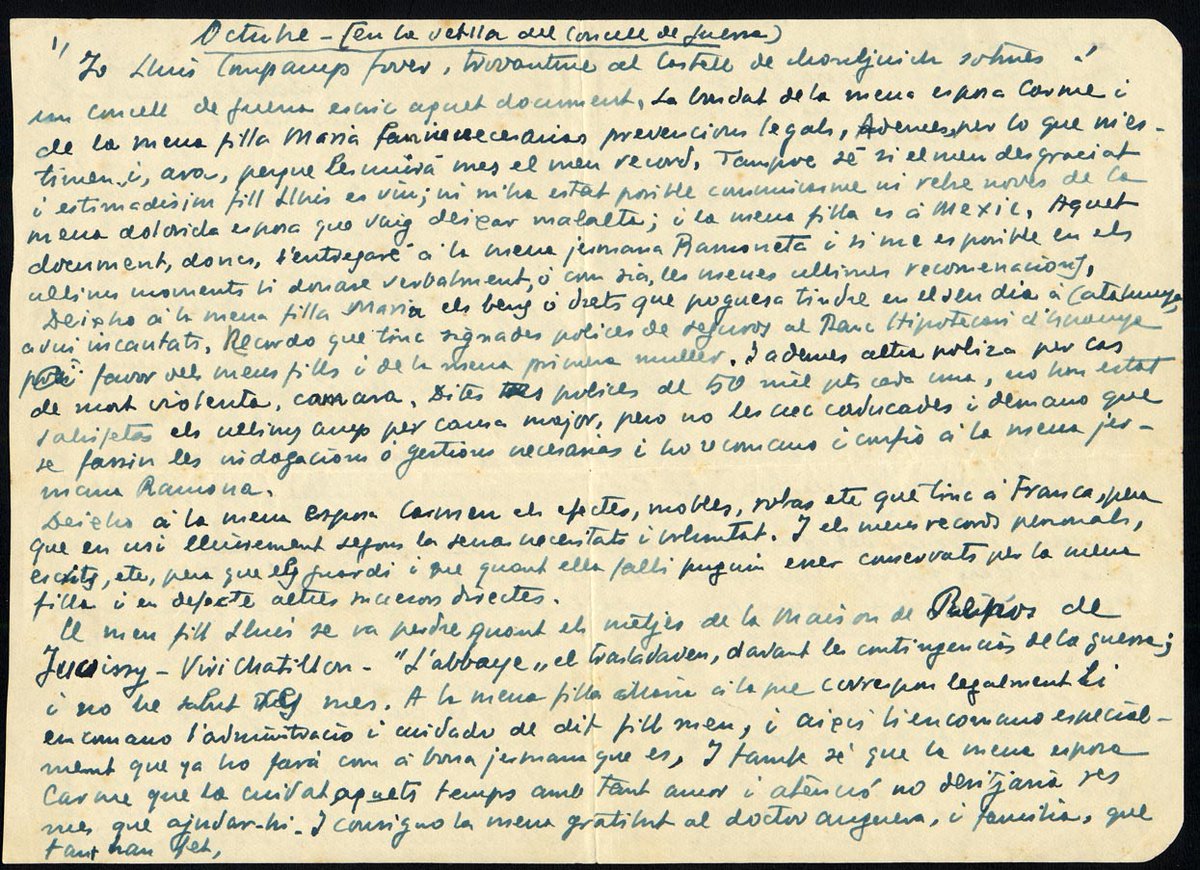 1/ Octubre - (en la vetlla del Concell de guerra)
Jo Lluis Companys Jover, trovantme al Castell de Montjuich sotmes á
un concell de guerra escric aquet document. La bondat de la meva esposa Carme i
de la meva filla Maria farà inecesarias prevencions legals, Ademes, per lo que m'es-
timen i, ara, perque les unirá mes el meu record. Tampoc sé si el meu desgraciat
i estimadisim fill Lluis es viu; ni m'ha estat posible comunicarme ni rebre noves de la
meva dolorida esposa que vaig deixar malalta; i la meva filla es á Mexic. Aquet
document, doncs, s'entregará á la meva jermana Ramoneta i si me es posible en els
ultims moments li donare verbalment, ó com sia, les meves ultimes recomenacions.
Deixho á la meva filla Maria els bens ó drets que pogues tindre en el seu dia á Catalunya,
avui incautats. Recordo que tinc signades polices de seguros al Banc Hipotecari d'Espanya
á favor dels meus fills i de la meva primera muller. I ademes altra poliza per cas
de mort violenta, com ara. Dites polices de 50 mil pts cada una, no han estat
satisfetas els ultims anys per causa major, pero no les crec caducades i demano que
se fassin les indagacions ó gestions necesarias i ho recomano i confio á la meva jer-
mana Ramona.
Deixho á la meva esposa Carmen els efectes, mobles, robas etc que tinc á França, pera
que en usi lliurement segons la sevas necesitats i voluntat. I els meus records personals,
escrits, etc, pera que els guardi i que quant ella falti puguin esser conservats per la meva
filla i en defecte altres sucesors directes.
El meu fill Lluis se va perdre quant els metjes de la Maison de Repos de
Juvissy - Viri Chatillon - "L'abbaye" el trasladaven, davant les contingencias de la guerra;
i no he sabut res mes. A la meva filla Maria á la que correspon legalment li
encomano l'administració i cuidado de dit fill meu, i aixis li encomano especial-
ment que ya ho fará com á bona jermana que es. I també sé que la meva esposa
Carme que la cuidat aquets temps amb tant amor i atenció no desitjaria res
mes que ajudar-hi. I consigno la meva gratitut al doctor anguera, i familia, que
tant han fet,